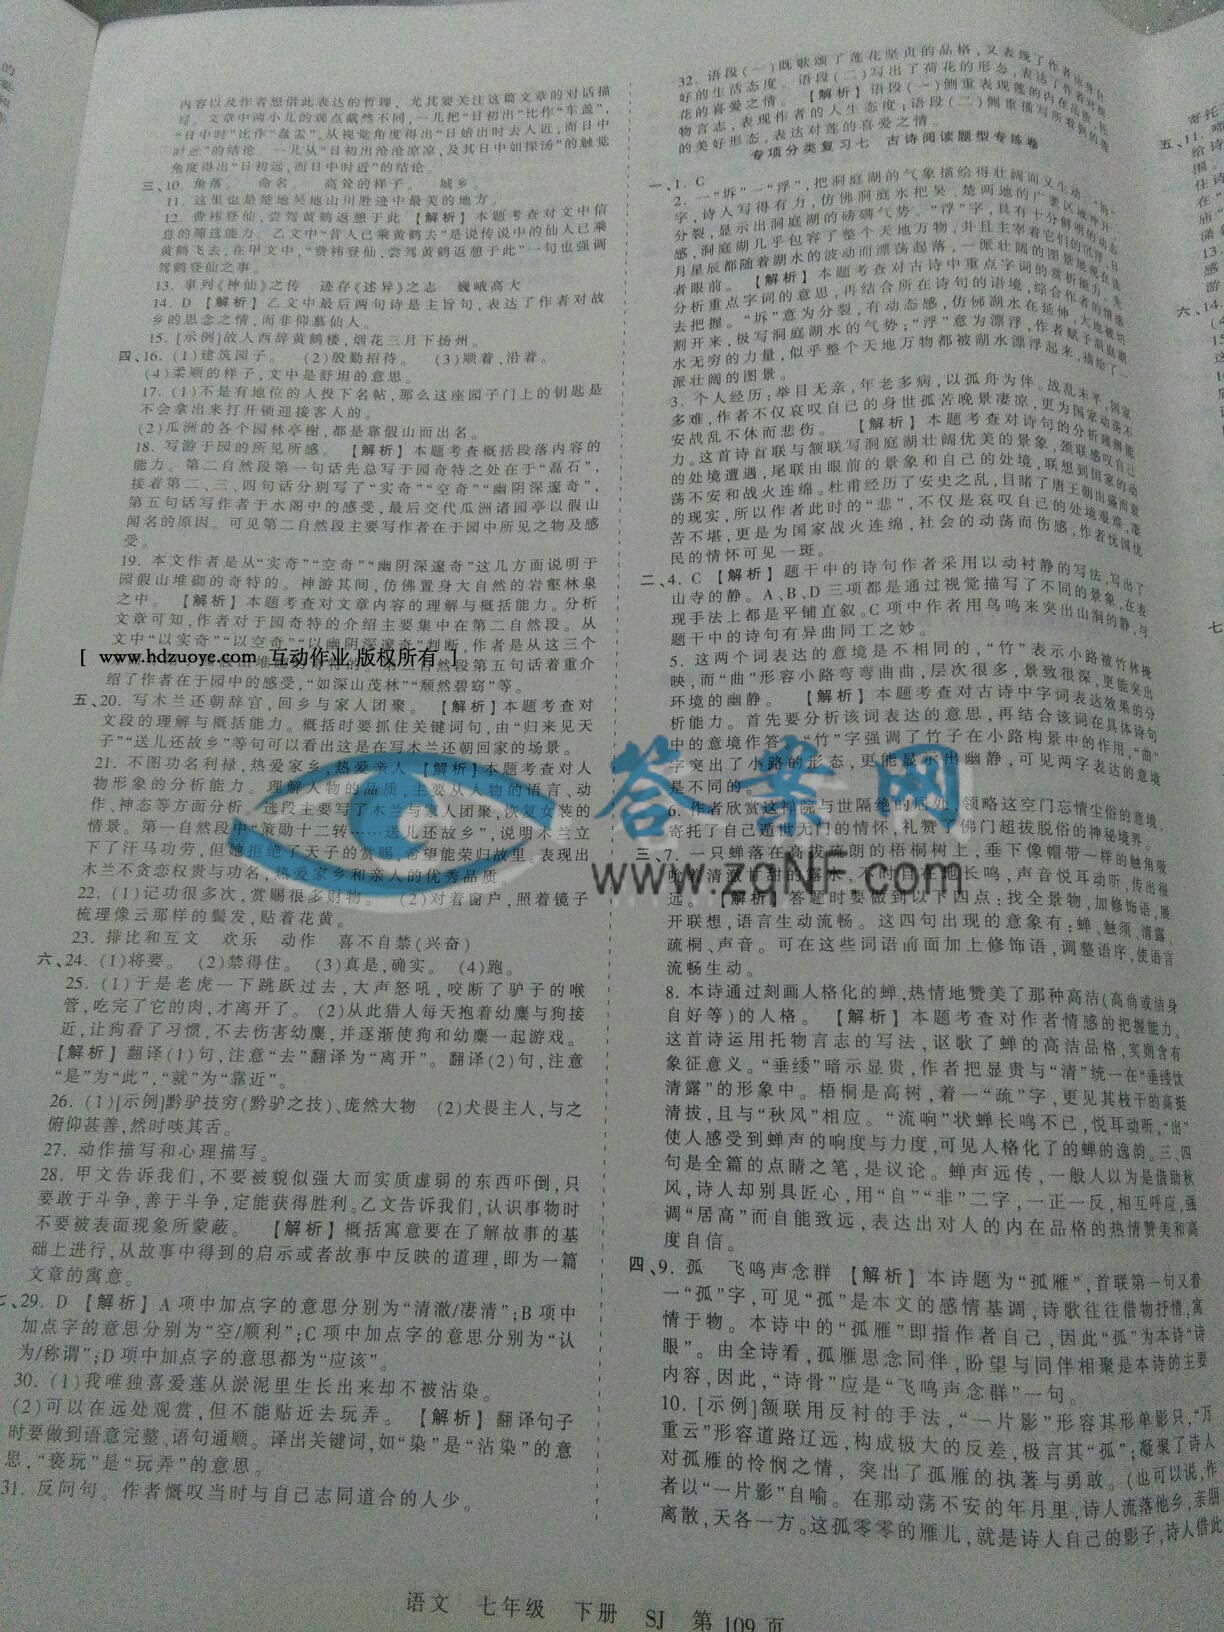 内容以及作者想借此表达的哲理，尤其要关注这篇文章的对话描
写。文章中两小儿的观点截然不同，一儿把“日初出”比作“车盖”，
“日中时”比作“盘盂”，从视觉角度得出“日始出时去人近，而日中
时远”的结论。一儿从“日初出沧沧凉凉，及其日中如探汤”的触觉
角度得出“日初远，而日中时近”的结论。
三、10. 角落。 命名。 高耸的样子。 城乡。
11. 这里也是楚地吴地山川胜迹中最美的地方。
12. 费祎登仙，尝驾黄鹤返憩于此 【解析】本题考查对文中信
息的筛选能力。乙文中“昔人已乘黄鹤去”是说传说中的仙人已乘
黄鹤飞去，在甲文中，“费祎登仙，尝驾黄鹤返憩于此”一句也强调
驾鹤登仙之事。
13. 事列《神仙》之传 迹存《述异》之志 巍峨高大
14. D 【解析】乙文中最后两句诗是主旨句，表达了作者对故
乡的思念之情，而非仰慕仙人。
15. [示例]故人西辞黄鹤楼，烟花三月下扬州。
四、16. (1)建筑园子。 (2)殷勤招待。 (3)顺着，沿着。
(4)柔顺的样子，文中是舒坦的意思。
17. (1)不是有地位的人投下名帖，那么这座园子门上的钥匙是
不会拿出来打开锁迎接客人的。
(2)瓜洲的各个园林亭榭，都是靠假山而出名。
18. 写游于园的所见所感。 【解析】本题考查概括段落内容的
能力。第二自然段第一句话先总写于园奇特之处在于“磊石”，
接着第二、三、四句话分别写了“实奇”“空奇”“幽阴深邃奇”，
第五句话写作者于水阁中的感受，最后交代瓜洲诸园亭以假山
闻名的原因。可见第二自然段主要写作者在于园中所见之物及感
受。
19. 本文作者是从“实奇”“空奇”“幽阴深邃奇”这几方面说明于
园假山堆砌的奇特的。神游其间，仿佛置身大自然的岩壑林泉
之中。 【解析】本题考查对文章内容的理解与概括能力。分析
文章可知，作者对于园奇特的介绍主要集中在第二自然段。从
文中“以实奇”“以空奇”“以幽阴深邃奇”判断，作者是从这三个
[ www.hdzuoye.com 互动作业 版权所有. ]
然段第五句话着重介
绍了作者在于园中的感受，“如深山茂林”“颓然碧窈”等。
五、20. 写木兰还朝辞官，回乡与家人团聚。 【解析】本题考查对
文段的理解与概括能力。概括时要抓住关键词句，由“归来见天
子”“送儿还故乡”等句可以看出这是在写木兰还朝回家的场景。
21. 不图功名利禄，热爱家乡，热爱亲人 【解析】本题考查对人
物形象的分析能力。理解人物的品质，主要从人物的语言、动
作、神态等方面分析。选段主要写了木兰与家人团聚，恢复女装的
情景。第一自然段中“策勋十二转……送儿还故乡”，说明木兰立
下了汗马功劳，但她拒绝了天子的赏赐，希望能荣归故里。表现出
木兰不贪恋权贵与功名，热爱家乡和亲人的优秀品质。
22. (1)记功很多次，赏赐很多财物。 (2)对着窗户，照着镜子
梳理像云那样的鬓发，贴着花黄。
23. 排比和互文 欢乐 动作 喜不自禁(兴奋)
六、24. (1)将要。 (2)禁得住。 (3)真是，确实。 (4)跑。
25. (1)于是老虎一下跳跃过去，大声怒吼，咬断了驴子的喉
管，吃完了它的肉，才离开了。(2)从此猎人每天抱着幼麋与狗接
近，让狗看了习惯，不去伤害幼麋，并逐渐使狗和幼麋一起游戏。
【解析】翻译(1)句，注意“去”翻译为“离开”。翻译(2)句，注意
“是”为“此”，“就”为“靠近”。
26. (1)[示例]黔驴技穷(黔驴之技)、庞然大物 (2)犬畏主人，与之
俯仰甚善，然时啖其舌。
27. 动作描写和心理描写。
28. 甲文告诉我们，不要被貌似强大而实质虚弱的东西吓倒，只
要敢于斗争，善于斗争，定能获得胜利。乙文告诉我们，认识事物时
不要被表面现象所蒙蔽。 【解析】概括寓意要在了解故事的基
础上进行，从故事中得到的启示或者故事中反映的道理，即为一篇
文章的寓意。
七、29. D 【解析】A项中加点字的意思分别为“清澈/凄清”；B项中
加点字的意思分别为“空/顺利”；C项中加点字的意思分别为“认
为/称谓”；D项中加点字的意思都为“应该”。
30. (1)我唯独喜爱莲从淤泥里生长出来却不被沾染。
(2)可以在远处观赏，但不能贴近去玩弄。 【解析】翻译句子
时要做到语意完整、语句通顺。译出关键词，如“染”是“沾染”的意
思，“亵玩”是“玩弄”的意思。
31. 反问句。作者慨叹当时与自己志同道合的人少。
32. 语段(一)既歌颂了莲花坚贞的品格，又表现了作者洁身自
好的生活态度。语段(二)写出了荷花的形态，表达了作者对荷
花的喜爱之情。 【解析】语段(一)侧重表现莲的内在品质，托
物言志，表现作者的人生态度；语段(二)侧重描写所看到的莲
的美好形态，表达对莲的喜爱之情。
专项分类复习七 古诗阅读题型专练卷
一、1. C
2. 一“坼”一“浮”，把洞庭湖的气象描绘得壮阔而又生动。“坼”
字，诗人写得有力，仿佛洞庭水把吴、楚两地的广袤区域冲开、
分裂，显示出洞庭湖的磅礴气势。“浮”字，具有十分鲜明的动态
感，洞庭湖几乎包容了整个天地万物，并且主宰着它们的沉浮，日
月星辰都随着湖水的波动而漂荡起落，一派壮阔的图景展现在读
者眼前。 【解析】本题考查对古诗中重点字词的赏析能力。先
分析重点字词的意思，再结合所在诗句的语境，综合作者的情感
去把握。“坼”意为分裂，有动态感，仿佛湖水在延伸，大地被切
割开来，极写洞庭湖水的气势；“浮”意为漂浮，作者赋予洞庭湖
水无穷的力量，似乎整个天地万物都被湖水漂浮起来，描绘了一
派壮阔的图景。
3. 个人经历：举目无亲，年老多病，以孤舟为伴。战乱未平，国家
多难，作者不仅哀叹自己的身世孤苦晚景凄凉，更为国家动荡不
安战乱不休而悲伤。 【解析】本题考查对诗句的分析理解能
力。这首诗首联与颔联写洞庭湖壮阔优美的景象，颈联感叹自己
的处境遭遇，尾联由眼前的景象和自己的处境，联想到国家的动
荡不安和战火连绵。杜甫经历了安史之乱，目睹了唐王朝由盛而衰
的现实，所以作者此时的“悲”，不仅是哀叹自己的处境艰难，凄
苦不堪，更是为国家战火连绵，社会的动荡而伤感，作者忧国忧
民的情怀可见一斑。
二、4. C 【解析】题干中的诗句作者采用以动衬静的写法，写出了
山寺的静。A、B、D三项都是通过视觉描写了不同的景象，在表
现手法上都是平铺直叙。C项中作者用鸟鸣来突出山涧的静，与
题干中的诗句有异曲同工之妙。
5. 这两个词表达的意境是不相同的，“竹”表示小路被竹林掩
映，而“曲”形容小路弯弯曲曲，层次很多，景致很深，更能突出
环境的幽静。 【解析】本题考查对古诗中字词表达效果的分
析能力。首先要分析该词表达的意思，再结合该词在具体诗句
中的意境作答。“竹”字强调了竹子在小路构景中的作用，“曲”
字突出了小路的形态，更能显示出幽静，可见两字表达的意境
是不同的。
6. 作者欣赏这禅院与世隔绝的居处，领略这空门忘情尘俗的意境，
寄托了自己遁世无门的情怀，礼赞了佛门超拔脱俗的神秘境界。
三、7. 一只蝉落在高拔疏朗的梧桐树上，垂下像帽带一样的触角吸
吮着清澈甘甜的露水，不时自在的长鸣，声音悦耳动听，传出很
远。 【解析】答题时要做到以下四点：找全景物，加修饰语，展
开联想，语言生动流畅。这四句出现的意象有：蝉、触须、清露、
疏桐、声音。可在这些词语前面加上修饰语，调整语序，使语言
流畅生动。
8. 本诗通过刻画人格化的蝉，热情地赞美了那种高洁(高尚或洁身
自好等)的人格。 【解析】本题考查对作者情感的把握能力。
这首诗运用托物言志的写法，讴歌了蝉的高洁品格，实则含有
象征意义。“垂緌”暗示显贵，作者把显贵与“清”统一在“垂緌饮
清露”的形象中。梧桐是高树，着一“疏”字，更见其枝干的高挺
清拔，且与“秋风”相应。“流响”状蝉长鸣不已，悦耳动听，“出”
使人感受到蝉声的响度与力度，可见人格化了的蝉的逸韵。三、四
句是全篇的点睛之笔，是议论。蝉声远传，一般人以为是借助秋
风，诗人却别具匠心，用“自”“非”二字，一正一反，相互呼应，强
调“居高”而自能致远，表达出对人的内在品格的热情赞美和高
度自信。
四、9. 孤 飞鸣声念群 【解析】本诗题为“孤雁”，首联第一句又着
一“孤”字，可见“孤”是本文的感情基调，诗歌往往借物抒情，寓
情于物。本诗中的“孤雁”即指作者自己，因此“孤”为本诗“诗
眼”。由全诗看，孤雁思念同伴，盼望与同伴相聚是本诗的主要
内容，因此，“诗骨”应是“飞鸣声念群”一句。
10. [示例]颔联用反衬的手法，“一片影”形容其形单影只，“万
重云”形容道路辽远，构成极大的反差，极言其“孤”；凝聚了诗人
对孤雁的怜悯之情，突出了孤雁的执著与勇敢。(也可以说，作
者以“一片影”自喻。在那动荡不安的年月里，诗人流落他乡，亲朋
离散，天各一方。这孤零零的雁儿，就是诗人自己的影子，诗人借此
答案网
www.zqNF.com
语文 七年级 下册 SJ 第109页